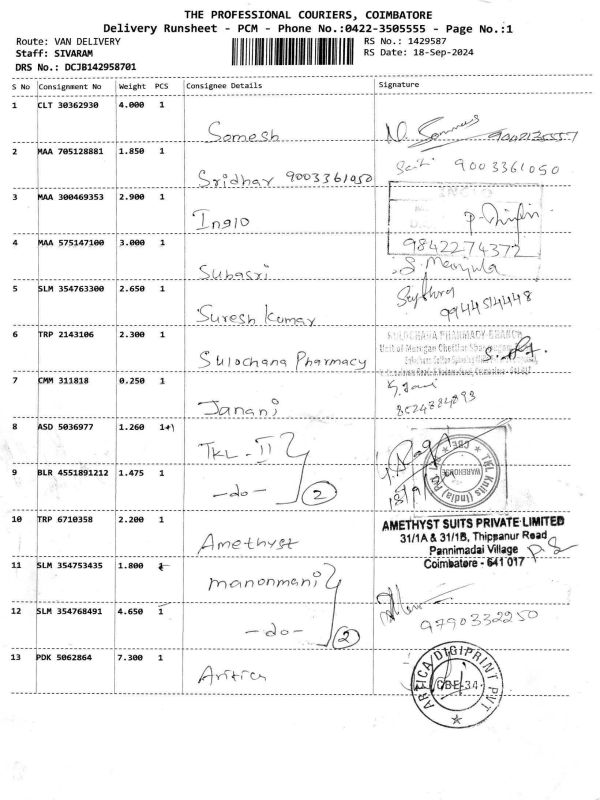 THE PROFESSIONAL COURIERS, COIMBATORE
Delivery Runsheet - PCM - Phone No.:0422-3505555 - Page No.:1
Route: VAN DELIVERY
RS No.: 1429587
Staff: SIVARAM
RS Date: 18-Sep-2024
DRS No.: DCJB142958701
S No Consignment No Weight PCS Consignee Details Signature
1 CLT 30362930 4.000 1
Somesh
2 MAA 705128881 1.850 1
Sridhar 9003361050 9003361050
3 MAA 300469353 2.900 1
Ingio
9842274372
4 MAA 575147100 3.000 1
Subasri S. Manjula
5 SLM 354763300 2.650 1
Suresh Kumar 9944514448
6 TRP 2143106 2.300 1
SULOCHANA PHARMACY BRANCH
Sulochana Pharmacy
7 CMM 311818 0.250 1
Janani
8 ASD 5036977 1.260 1+1
TKL - II
CBE
TKL Knits (India) Pvt
WAREHOUSE
9 BLR 4551891212 1.475 1
-do- 2
18/9
10 TRP 6710358 2.200 1
Amethyst
AMETHYST SUITS PRIVATE LIMITED
31/1A & 31/1B, Thippanur Road
Pannimadai Village
Coimbatore - 641 017
11 SLM 354753435 1.800
manonmani
12 SLM 354768491 4.650 1
-do- 2
9790332250
13 PDK 5062864 7.300 1
Artica
ARTICA DIGIPRINT PVT
CBE-34